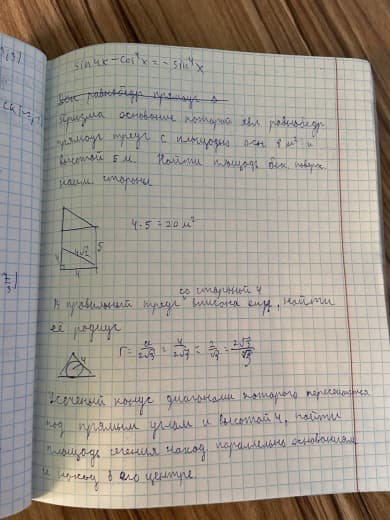 sin4x - cos⁴x = - sin⁴x
Призма основание который явл равнобедр
прямоуг треуг с площадью осн 8 м² и
высотой 5 м. Найти площадь бок. поверх.
наим. стороны
4·5 = 20 м²
5
4
4√2
4
со стороной 4
В правильный треуг вписана окр, найти
её радиус
4
r = a/2√3 = 4/2√3 = 2/√3 = 2√3/3
Усеченый конус диагонали которого пересекаются
под прямым углом и высотой 4, найти
площадь сечения наход параллельно основаниям
и наход в его центре.